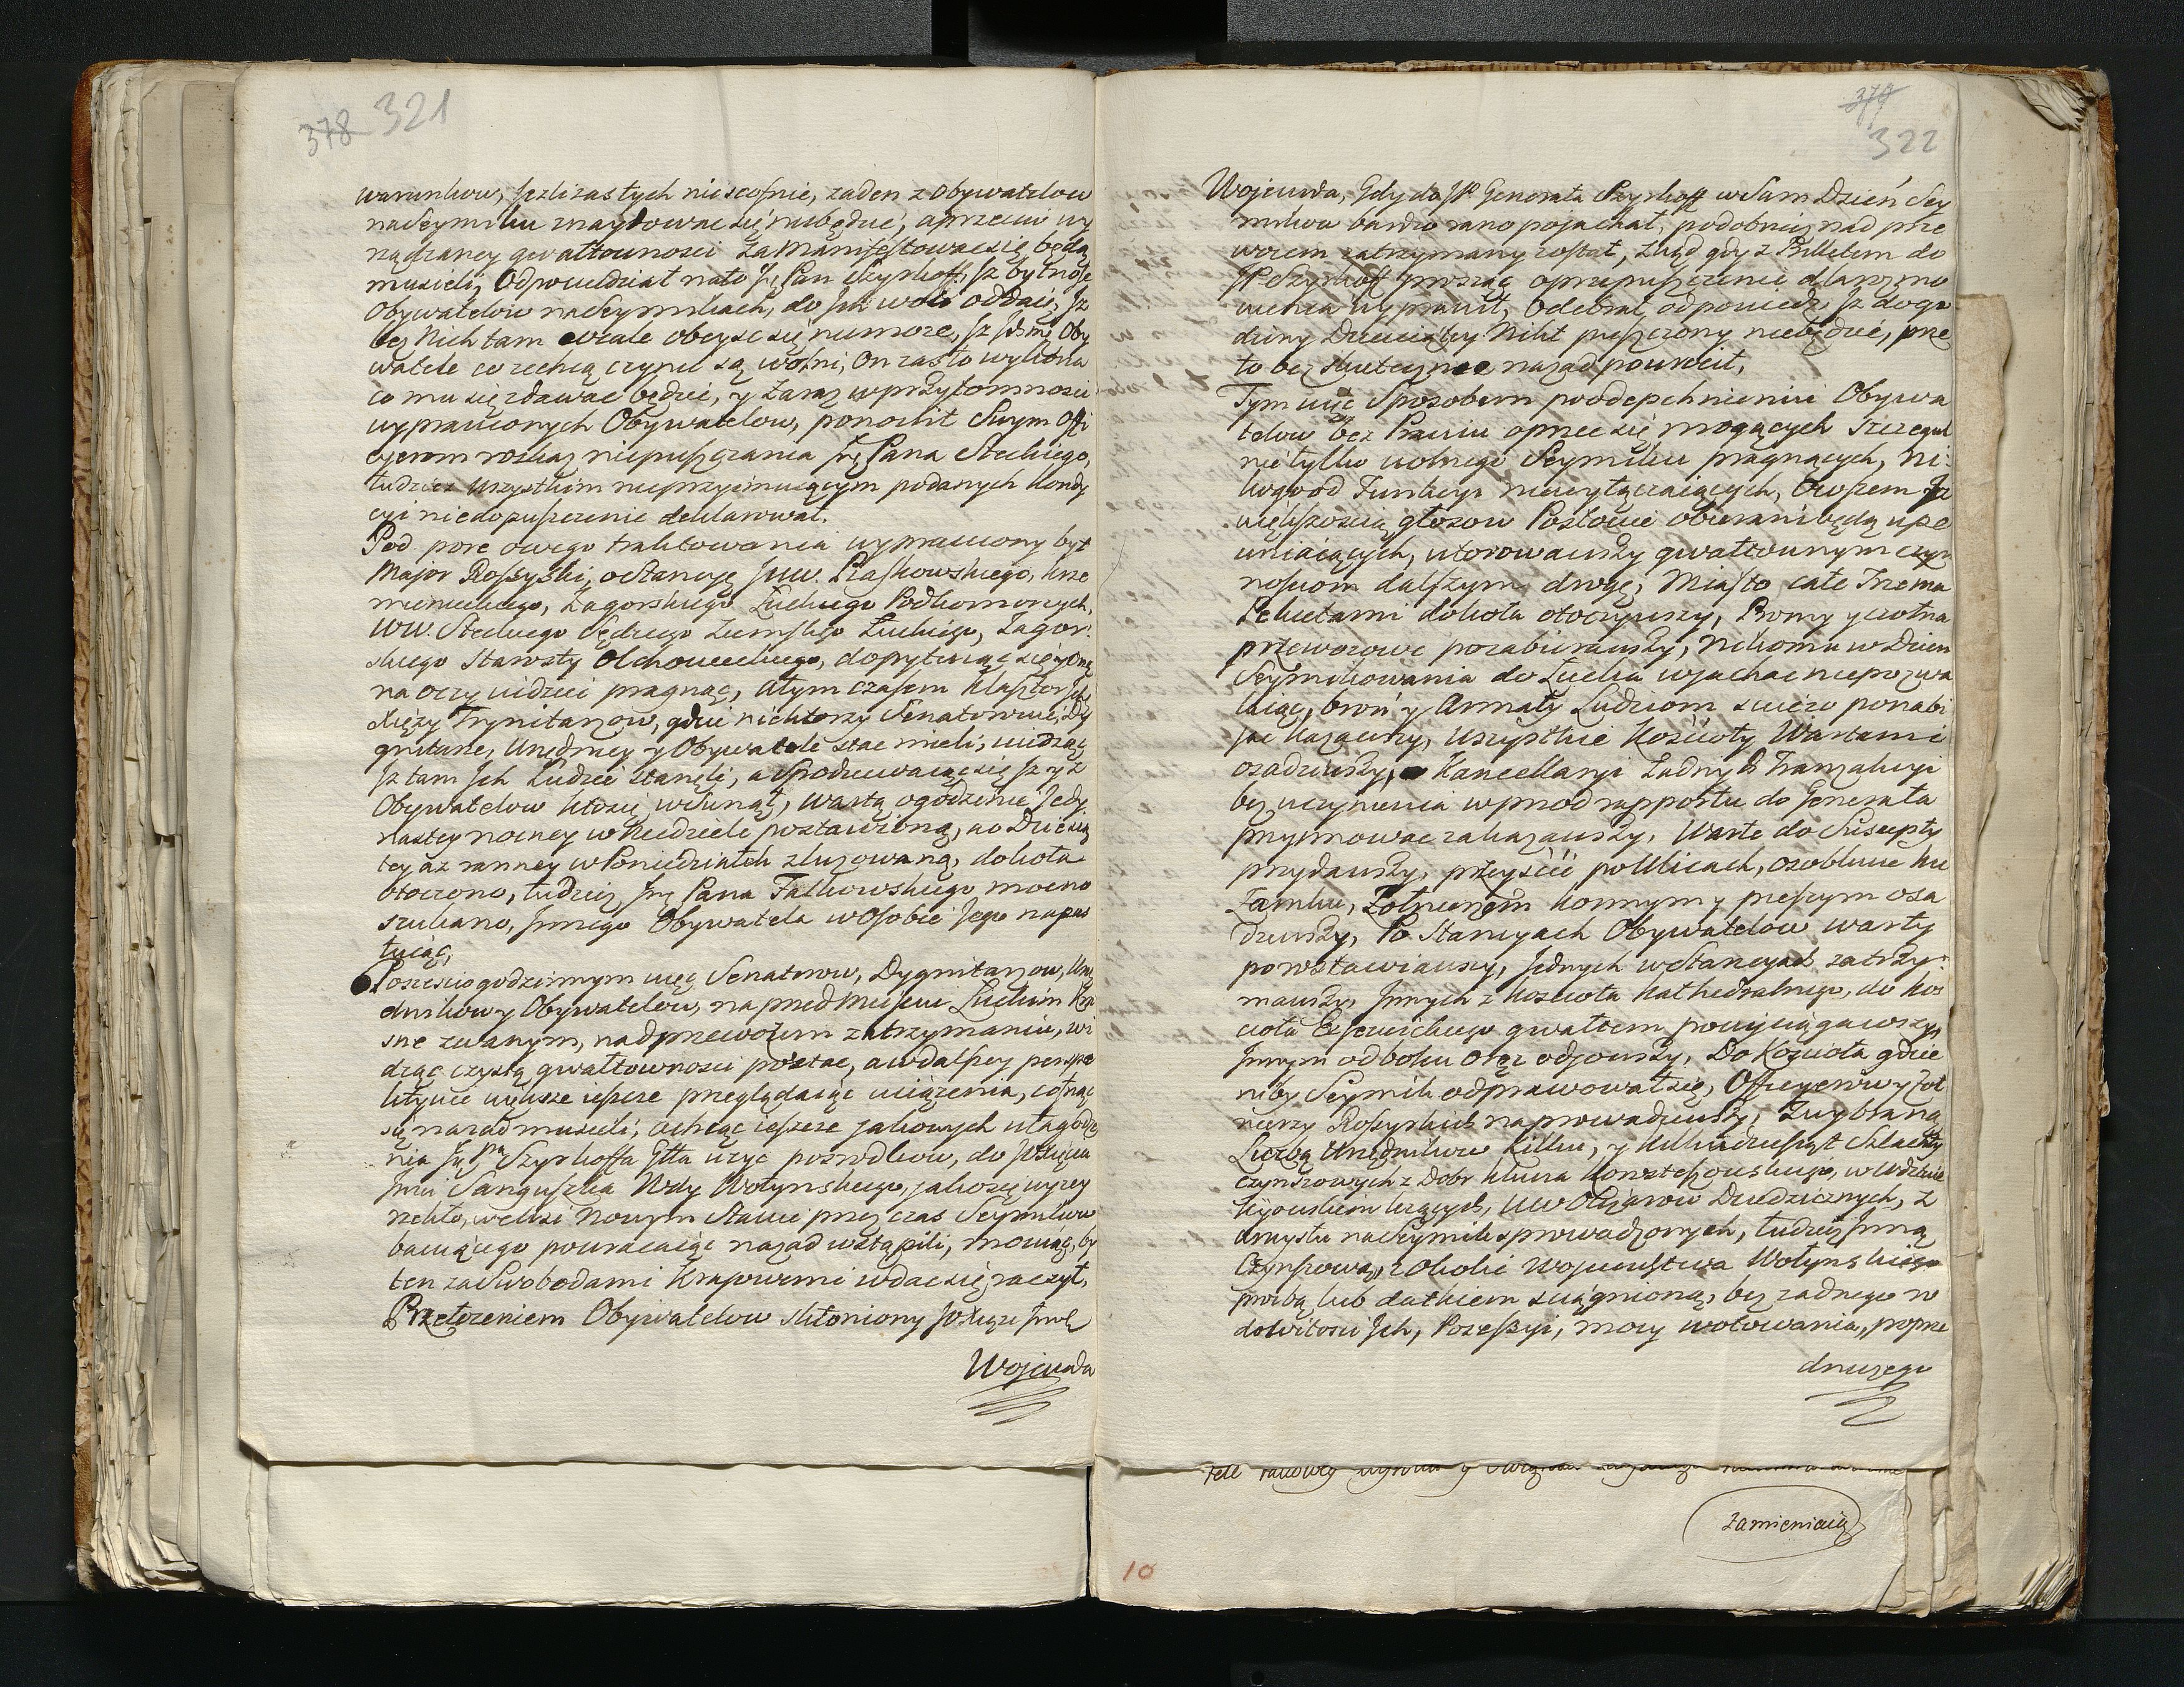 378 321
warunkow, jezli zas tych nie scofnie, zaden z Obywatelow
na Seymiku znaydować się niebędzie, a przeciw wy
rządzaney gwałtowności zamanifestować się będą
musieli, Odpowiedział na to Jć Pan Szyrkoff, Jż bytność
Obywatelow na Seymikach, do Jch woli oddaie, Jż
bez Nich tam wcale obeysć się niemoże, Jż Jchmć Oby
watele co zechcą czynić są wolni, On zaś to wykona
co mu się zdawać będzie, y zaraz w przytomności
wyprawionych Obywatelow, ponowił Swym Offi
cyerom roskaz niepuszczania Jmć Pana Steckiego,
tudziesz wszystkim nieprzyimuiącym podanych kondy
cyi niedopuszczenie deklarował.
Pod porę owego traktowania wyprawiony był
Major Rossyiski, o Stancyę Jww. Piaskowskiego, Krze
mienieckiego, Zagorskiego Łuckiego Podkomorzych,
WW. Steckiego Sędziego Ziemskiego Łuckiego, Zagor
skiego Starosty Olchowieckiego, dopytuiąc się y onę
na oczy widzieć pragnąc, a tym czasem Klasztor Jch
Xięży Trynitarzow, gdzie niektorzy Senatorowie, Dy
gnitarze, Urzędnicy y Obywatele stać mieli, widząc
Jż tam Jch Ludzie stanęli, a Spodziewaiąc się Jż y z
Obywatelow ktoś wsunął, wartą o godzinie Jedy
nastey nocney w Niedziele postawioną, a o Dziesią
tey aż ranney w Poniedziałek zluzowaną, dokoła
otoczono, tudziesz Jmć Pana Falkowskiego mocno
szukano, Jnnego Obywatela w Osobie Jego napas
tuiąc,
Po sześciogodzinnym więc Senatorow, Dygnitarzow, Urzę
dnikow y Obywatelow, na przedmieściu Łuckim Kra
sne zwanym, nad przewozem zatrzymaniu, wi
dząc czystą gwałtowności postać, a w dalszey perspe
ktywie większe ieszcze przeglądaiąc uciążenia, cofnąć
się nazad musieli; a chcąc ieszcze jakowych ułagodze
nia Jć Pa Szyrkoffa Gtła użyć posrodkow, do JO Xięcia
Jmci Sanguszka Wdy Wołynskiego, jakoż się wyżey
rzekło, we Wsi Nowym Stawie przez czas Seymikow
bawiącego powracaiąc nazad wstąpili, mowiąc, by
ten za Swobodami Krajowemi wdać się raczył,
Przełożeniem Obywatelow skłoniony JO Xiąże Jmć
Wojewoda
379
322
Wojewoda, Gdy do JP Generała Szyrkoff w Sam Dzień Sey
mikow bardzo rano pojachał, podobnież nad prze
wozem zatrzymany został, zkąd gdy z Billetem do
JP Szyrkoff prosząc o przepuszczenie
wyprawił, Odebrał odpowiedz Jż do go
dziny Dziesiątey Nikt puszczony niebędzie, prze
to bez skutecznie nazad powrócił,
Tym więc Sposobem po odepchnieniu Obywa
telow bezprawiu oprzeć się mogących Szczegul
nie tylko wolnego Seymiku pragnących, Ni
kogo od Funkcyi niewyłączaiących, Owszem Jż
większością głosow Posłowie obierani będą upe
wniaiących, utorowawszy gwałtownym czyn
nościom dalszym drogę, Miasto całe Trzema
Pikietami dokoła otoczywszy, Promy y czołna
przewozowe pozabierawszy, Nikomu w Dzien
Seymikowania do Łucka wjachać niepozwa
laiąc, broń y Armaty Ludziom swieżo ponabi
jać kazawszy, wszystkie Kościoły Wartami
osadziwszy, Kancellaryi żadnych Tranzakcyi
bez uczynienia wprzod rapportu do Generała
przyimować zakazawszy, Warte do Suscepty
przydawszy, przeyście po Ulicach, osobliwie ku
Zamku, Żołnierzem konnym y pieszym osa
dziwszy, Po Stancyach Obywatelow warty
powstawiawszy, Jednych w Stancyach zatrzy
mawszy, Jnnych z Kościoła Kathedralnego, do Koś
cioła Exjezuickiego gwałtem powyciągawszy,
Jnnym od boku oręż odjowszy, Do Kościoła gdzie
niby Seymik odprawował się, Officyerow y Żoł
nierzy Rossyiskich naprowadziwszy, Zwybraną
Liczbą Urzędnikow kilku, y kilkudziesiąt Szlachty
Czynszowych z Dobr klucza, w Wdztwie
Kijowskim leżących, Dziedzicznych, z
umysłu na Seymik sprowadzonych, tudziesz Jnną
Czynszową, z Okolic Wojewodztwa Wołynskiego
prozbą lub datkiem sciągnioną, bez żadnego w
dowitości Jch, Possessyi, mocy wotowania, poprze
dniczego
zamieniaią
10